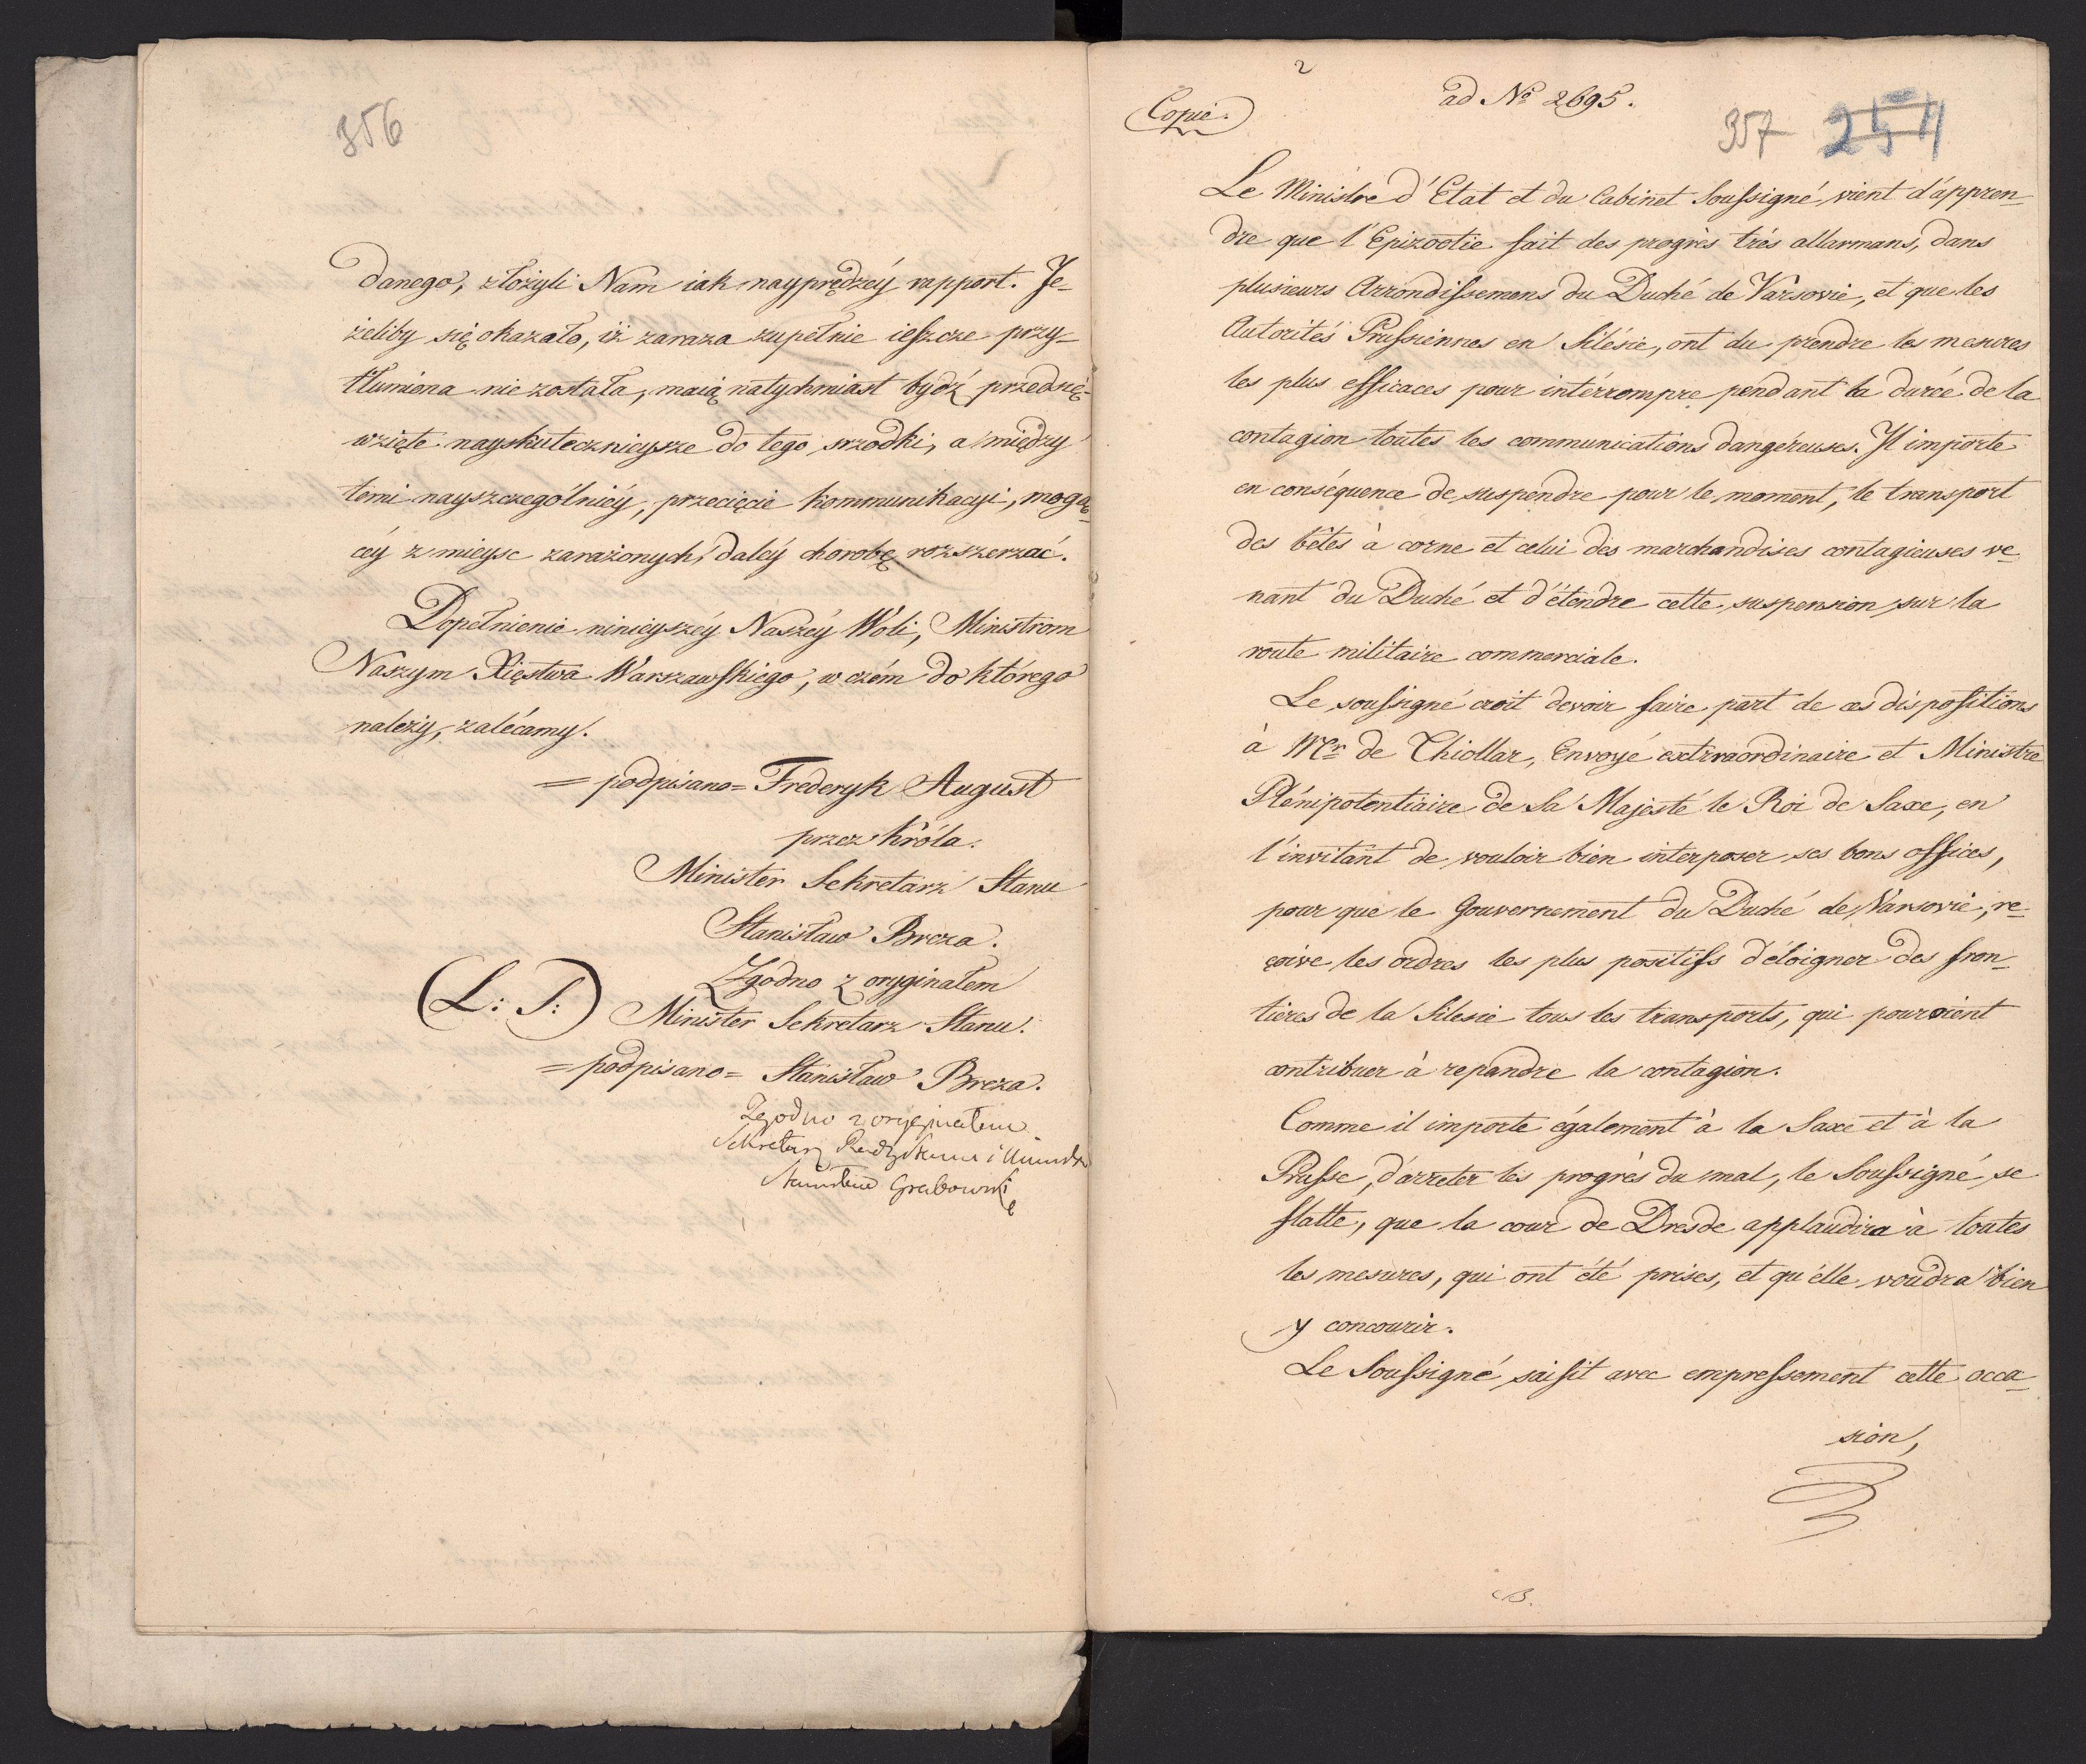 356
danego, złożyli Nam iak nayprędzéy rapport. Je-
żeliby się okazało, iż zaraza zupełnie ieszcze przy-
tłumiona nie została, maią natychmiast bydź przedsię-
wzięte nayskutecznieysze do tego srzodki, a między
temi nayszczególniéy, przecięcie kommunikacyi, mogą-
céy z mieysc zarażonych, daléy chorobę rozszerzać.
Dopełnienie ninieyszéy Naszéy Woli, Ministrom
Naszym Xięstwa Warszawskiego, w czém do którego
należy, zalécamy.
= podpisano = Frederyk August
przez Króla.
Minister Sekretarz Stanu
Stanisław Breza.
Zgodno z oryginałem
(L: S:) Minister Sekretarz Stanu.
= podpisano = Stanisław Breza.
Zgodno z oryginałem
Sekretarz Rady Stanu i Ministrów
Stanisław Grabowski
2
Copie.
ad No 2695.
357 254
Le Ministre d'Etat et du Cabinet Soussigné vient d'appren-
dre que l'Epizootie fait des progrès trés allarmans, dans
plusieurs Arrondissemens du Duché de Varsovie, et que les
Autorités Prussiennes en Silésie, ont du prendre les mesures
les plus efficaces pour intérrompre pendant la durée de la
contagion toutes les communications dangéreuses. Il importe
en conséquence de suspendre pour le moment, le transport
des bêtes à corne et celui des marchandises contagieuses ve-
nant du Duché et d'étendre cette suspension sur la
route militaire commerciale.
Le soussigné croit devoir faire part de ces dispositions
à Mr de Thiollaz, Envoyé extrraordinaire et Ministre
Plénipotentiaire de Sa Majesté le Roi de Saxe, en
l'invitant de vouloir bien interposer ses bons offices,
pour que le Gouvernement du Duché de Varsovie, re-
çoive les ordres les plus positifs d'éloigner des fron-
tieres de la Silesie tous les transports, qui pouroient
contribuer à repandre la contagion.
Comme il importe également à la Saxe et à la
Prusse, d'arreter les progrès du mal, le Soussigné se
flatte, que la cour de Dresde applaudira à toutes
les mesures, qui ont été prises, et qu'elle voudra bien
y concourir.
Le Soussigné saisit avec empressement cette occa-
sion,
B.